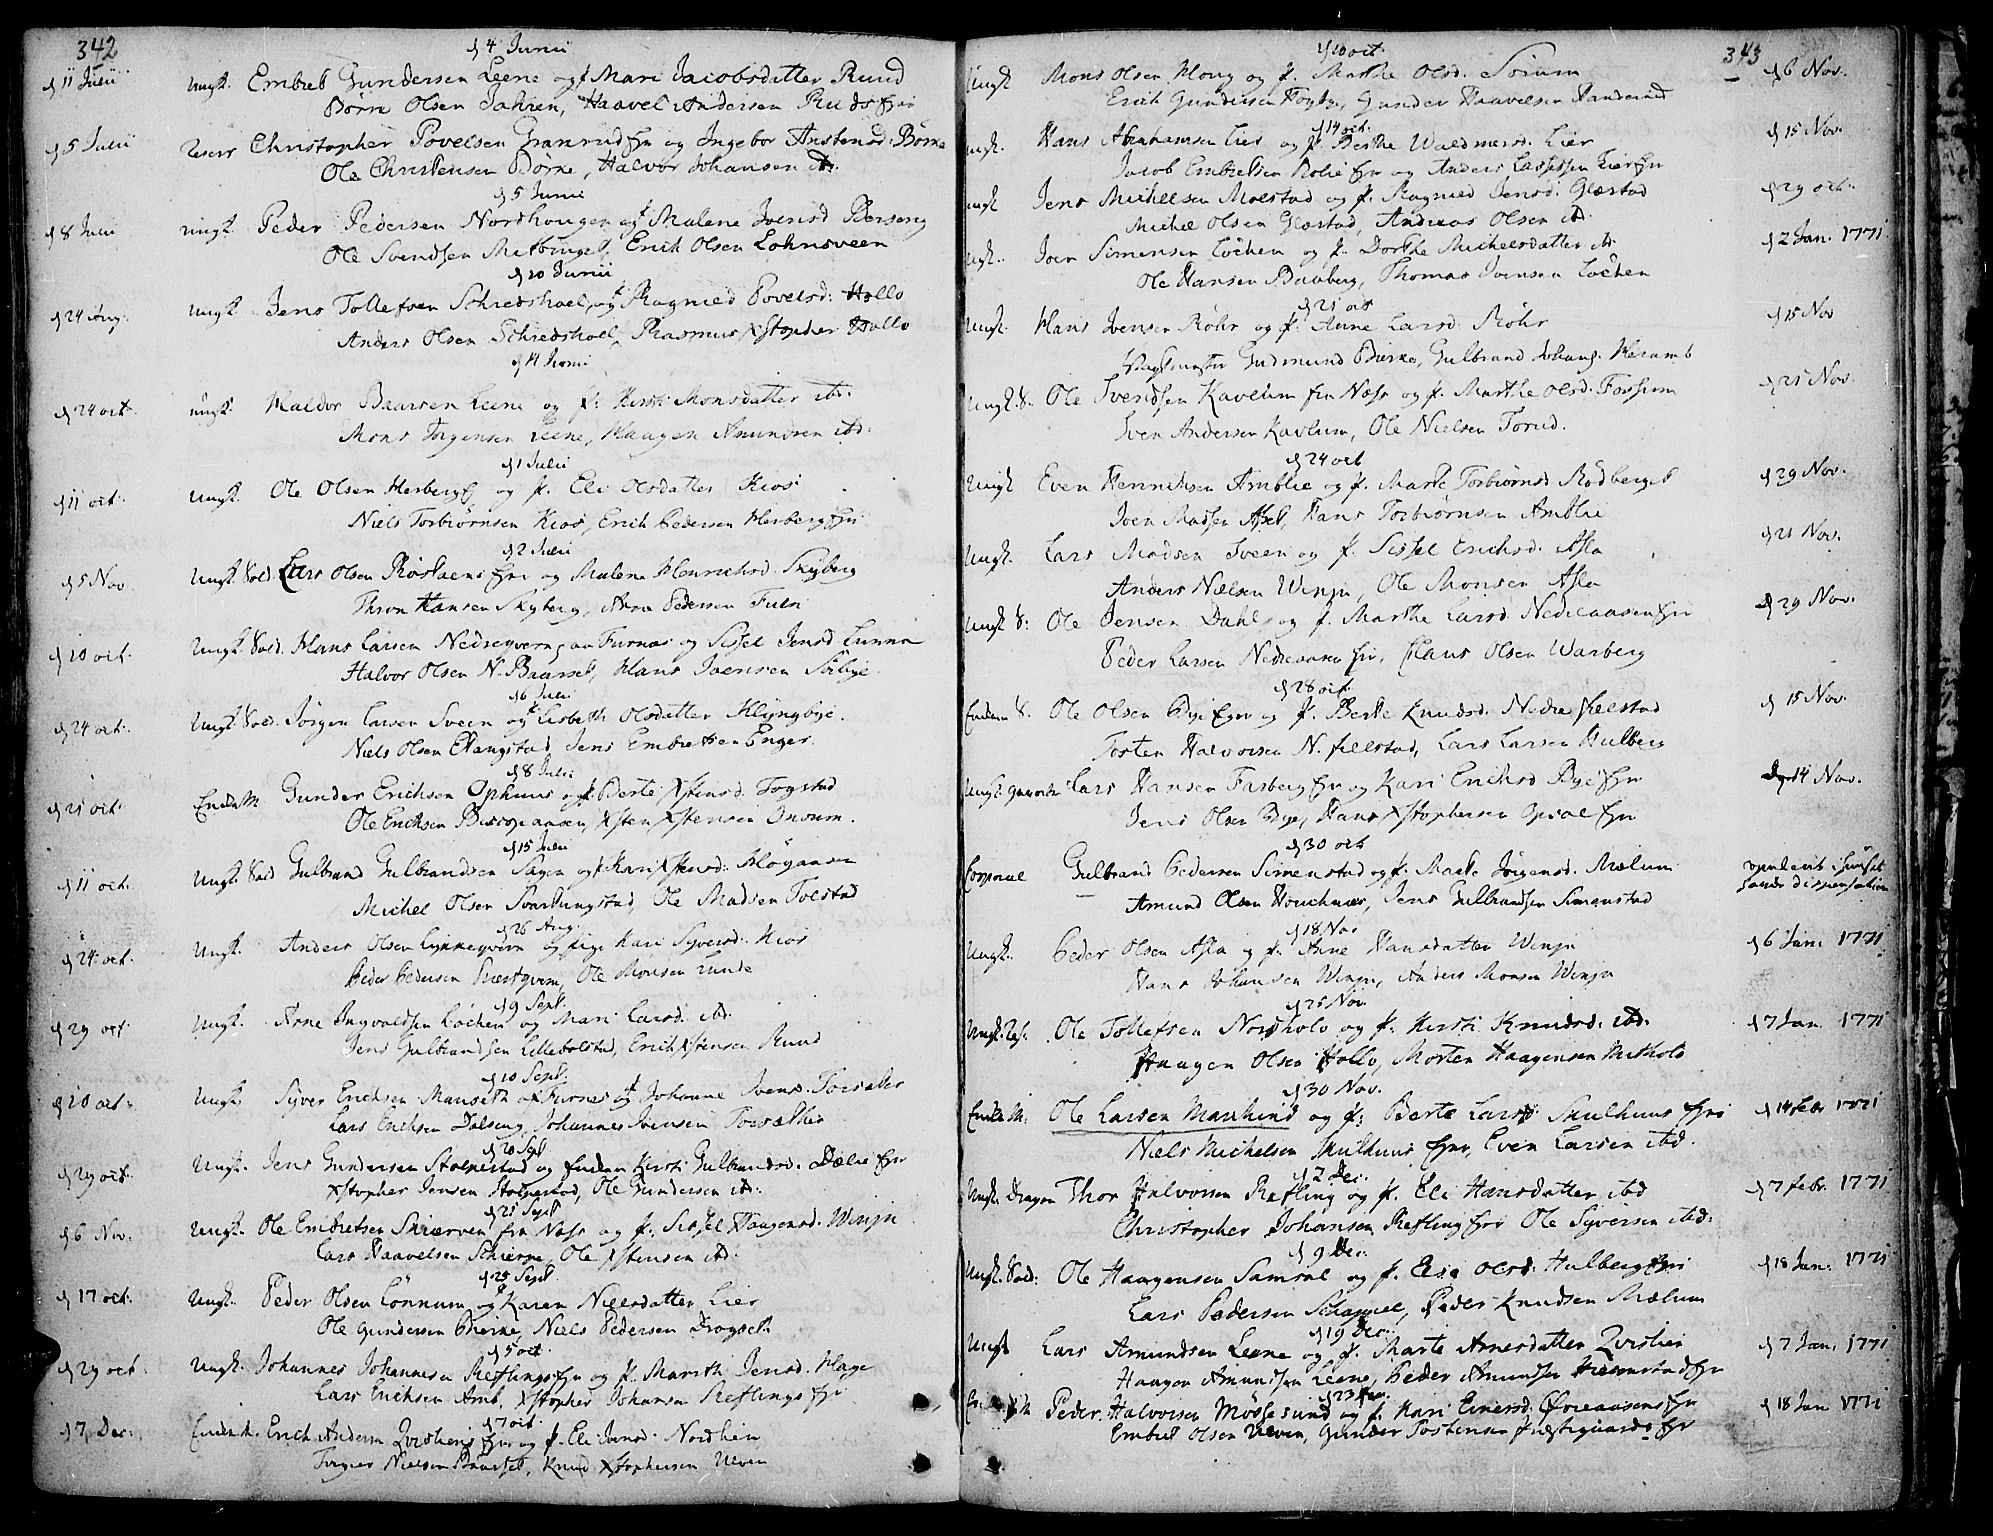 342
d 4 Junii
d 11 Julii Ungk. Embret Gundersen Leene og p. Mari Jacobsdatter Ruud
Børre Olsen Jahren, Haavel Andersen Ruds Eyr
d 5 Julii Reserv Christopher Povelsen Granrud Eyr og Ingebor Anstensd: Børke
Ole Christensen Børke, Halvor Johansen ibd.
d 5 Junii
d 8 Julii ungk. Peder Pedersen Nordhougen og p. Malene Joensd Berseng
Ole Svendsen, Erich Olsen Lohnsveen
d 10 Junii
d 24 Aug. Ungk. Jens Tollefsen Schredshoel, og p. Ragnild Povelsd: Hollo
Anders Olsen Schredshoel, Rasmus Xstopher Hollo
d 14 Junii
d 24 oct. ungk. Haldor Baarsen Leene og p: Kirsti Monsdatter ibd.
Mons Jørgensen Leene, Haagen Amundsen ibd:
d 1 Julii
d 11 oct. Ungk. Ole Olsen Herberg og p. Eli Olsdatter Kios
Niels Torbiørnsen Kios, Erich Pedersen Herberg Eyr
d 2 Julii
d 5 Nov. Ungk. Sold. Lars Olsen Eyr og Malene Henrichsd. Skyberg
Thron Hansen Skyberg, Arne Pedersen
d 10 oct. Ungk. Sold. Hans Larsen Nedreqvern paa Furnæs og Sissel Jensd Lunna
Halvor Olsen N. Baarset, Hans Joensen
d 6 Julii
d 24 oct. Ungk. Sold. Jørgen Larsen Sveen og p. Lisbeth Olsdatter Klyngbye.
Niels Olsen, Jens Embretsen Enger.
d 8 Julii
d 21 oct Enkem Gunder Erichsen Ophuus og p. Berte Xstensd. Togstad
Ole Erichsen, Xsten Xstensen
d 15 Julii
d 11 oct. Ungk. Sold Gulbrand Gulbrandsen Sagen og p Kari Xstensd:
Michel Olsen Svartungstad, Ole Madsen Tolstad
d 26 Aug.
d 24 oct. Ungk. Anders Olsen Lykkeqvern og pige Kari Syversd. Kios
Peder Pedersen, Ole Monsen Lunde
d 9 Sept.
d 29 oct Ungk. Arne Ingvoldsen Løchen og Mari Larsd. ibd.
Jens Gulbrandsen Lillebolstad, Erich Xstensen Ruud
d 10 Sept.
d 10 oct. Ungk. Syver Erichsen Manseth a Furnes og p Johanne Joensd.
Lars Erichsen Dalseng, Johannes Joensen
d 20 Sept
d 29 oct. Ungk. Jens Gundersen Stolpestad og Enken Kirsti Gulbrandsd. Dælie Eyr
Xstopher Jensen Stolpestad, Ole Gundersen ibd.
d 21 Sept
d 6 Nov. Ungk. Ole Embretsen Skierven fra Næss og p. Sissel Haagensd. Winju
Lars Haavelsen Skierve, Ole Xstensen ibd.
d 25 Sept.
d 17 oct. Ungk. Peder Olsen Lønnum og Karen Nielsdatter Lier
Ole Gundersen Bierke, Niels Pedersen Dragset.
d 5 oct.
d 29 oct: Ungk. Johannes Johannesen Reflings Eyr og p. Marith Jensd. Hage
Lars Erichsen Arnb, Xstopher Johansen Reflings Eyr
d 7 oct.
d 7 Dec: Enkem. Erich Andersen Qvistlien Eyr og p. Eli Joensd. Nordlien
Nielsen Baarset, Knud Xstophersen Ulven
343
d 10 oct.
Ungk Mons Olsen Houg og p. Marthe Olsd. Sørum d 6 Nov.
Erich Gundersen, Gunder Haavelsen Handerud
d 14 oct.
ungk. Hans Abrahamsen Lier og p. Berthe Waldmersd. Lier d 15 Nov.
Jacob Embretsen Rolie Eyr og Anders Larssen Lier Eyr
ungk Jens Michelsen Molstad og p. Ragnild Jensd. Glæstad d 29 oct.
Michel Olsen Glæstad, Andreas Olsen ibd.
Ungk. Joen Simensen Løchen og p. Dorthe Michelsdatter ib. d 2 Jan. 1771.
Ole Hansen Bauberg, Thomas Joensen Løchen
d 21 oct
Ungk. Hans Joensen Røhr og p. Anne Larsd. Røhr d 15 Nov
Gudmund Bierke, Gulbrand Johans. Heramb
Ungk. S. Ole Svendsen Kavlum fra Næss og p. Marthe Olsd. Fossum d 21 Nov.
Sven Andersen Kavlum, Ole Nielsen Torud.
d 24 oct
Ungk Even Henrichsen Amblie og p. Marte Torbiørnsd Rødberget d 29 Nov.
Joen Madsen, Hans Torbiørnsen Amblie
Ungk. Lars Madsen Sveen og p. Sissel Erichsd. Asla d 21 Nov.
Anders Nielsen Winju, Ole Monsen Asla
Ungk S: Ole Jensen Dahl og p. Marthe Larsd. Nedreaasen Eyr d 29 Nov.
Peder Larsen Nedreaasen Eyr, Claus Olsen Warberg
d 28 oct.
Enkem S. Ole Olsen Bye Eyer og p. Berte Knudsd. Nedre Skelstad d 15 Nov.
Tosten Halvorsen N. Skelstad, Lars Larsen Hulberg
Ungk. Lars Hansen Farberg Eyr og Kari Erichsd Bye Eyr d 14 Nov.
Jens Olsen Bye, Hans Xstophersen Opsal Eyr
d 30 oct
Corporal Gulbrand Pedersen Simenstad og p. Marte Jørgensd. Mælum
Amund Olsen, Jens Gulbrandsen Simenstad
d 18 Nov
Ungk. Peder Olsen Asla og p. Anne Hansdatter Winju d 6 Jan. 1771
Hans Johansen Winju, Anders Monsen Winju
d 25 Nov.
Ungk. Res. Ole Tollefsen Nordholo og p. Kirsti Knudsd. ibd. d 7 Jan. 1771
Haagen Olsen Hollo, Morten Haagensen Mitholo
d 30 Nov.
Enkem. Ole Larsen og p: Berte Larsd Skulhuus Eyr d 14 febr 1771
Niels Michelsen Skulhuus Eyr, Even Larsen ibd.
d 2 Dec.
Ungk. Dragon Thor Halvorsen Refling og p. Eli Hansdatter ibd d 7 febr. 1771
Christopher Johansen Refling Eyr Ole Syversen ibd.
d 9 Dec.
Ungk. Sold: Ole Haagensen Samsal og p. Elsi Olsd. Hulberg Eyr d 18 Jan. 1771
Lars Pedersen Schappel, Peder Knudsen Mælum
d 19 Dec.
Ungk Lars Amundsen Leene og p. Marte Arnesdatter Qvistlien d 7 Jan. 1771
Haagen Amundsen Leene, Peder Amundsen Eyr
Peder Halvorsen Mossesund og p. Kari Einersd. Øvreaasens Eyr d 18 Jan 1771
Embret Olsen Ulven, Gunder Tostensen Præstegaards Eyr